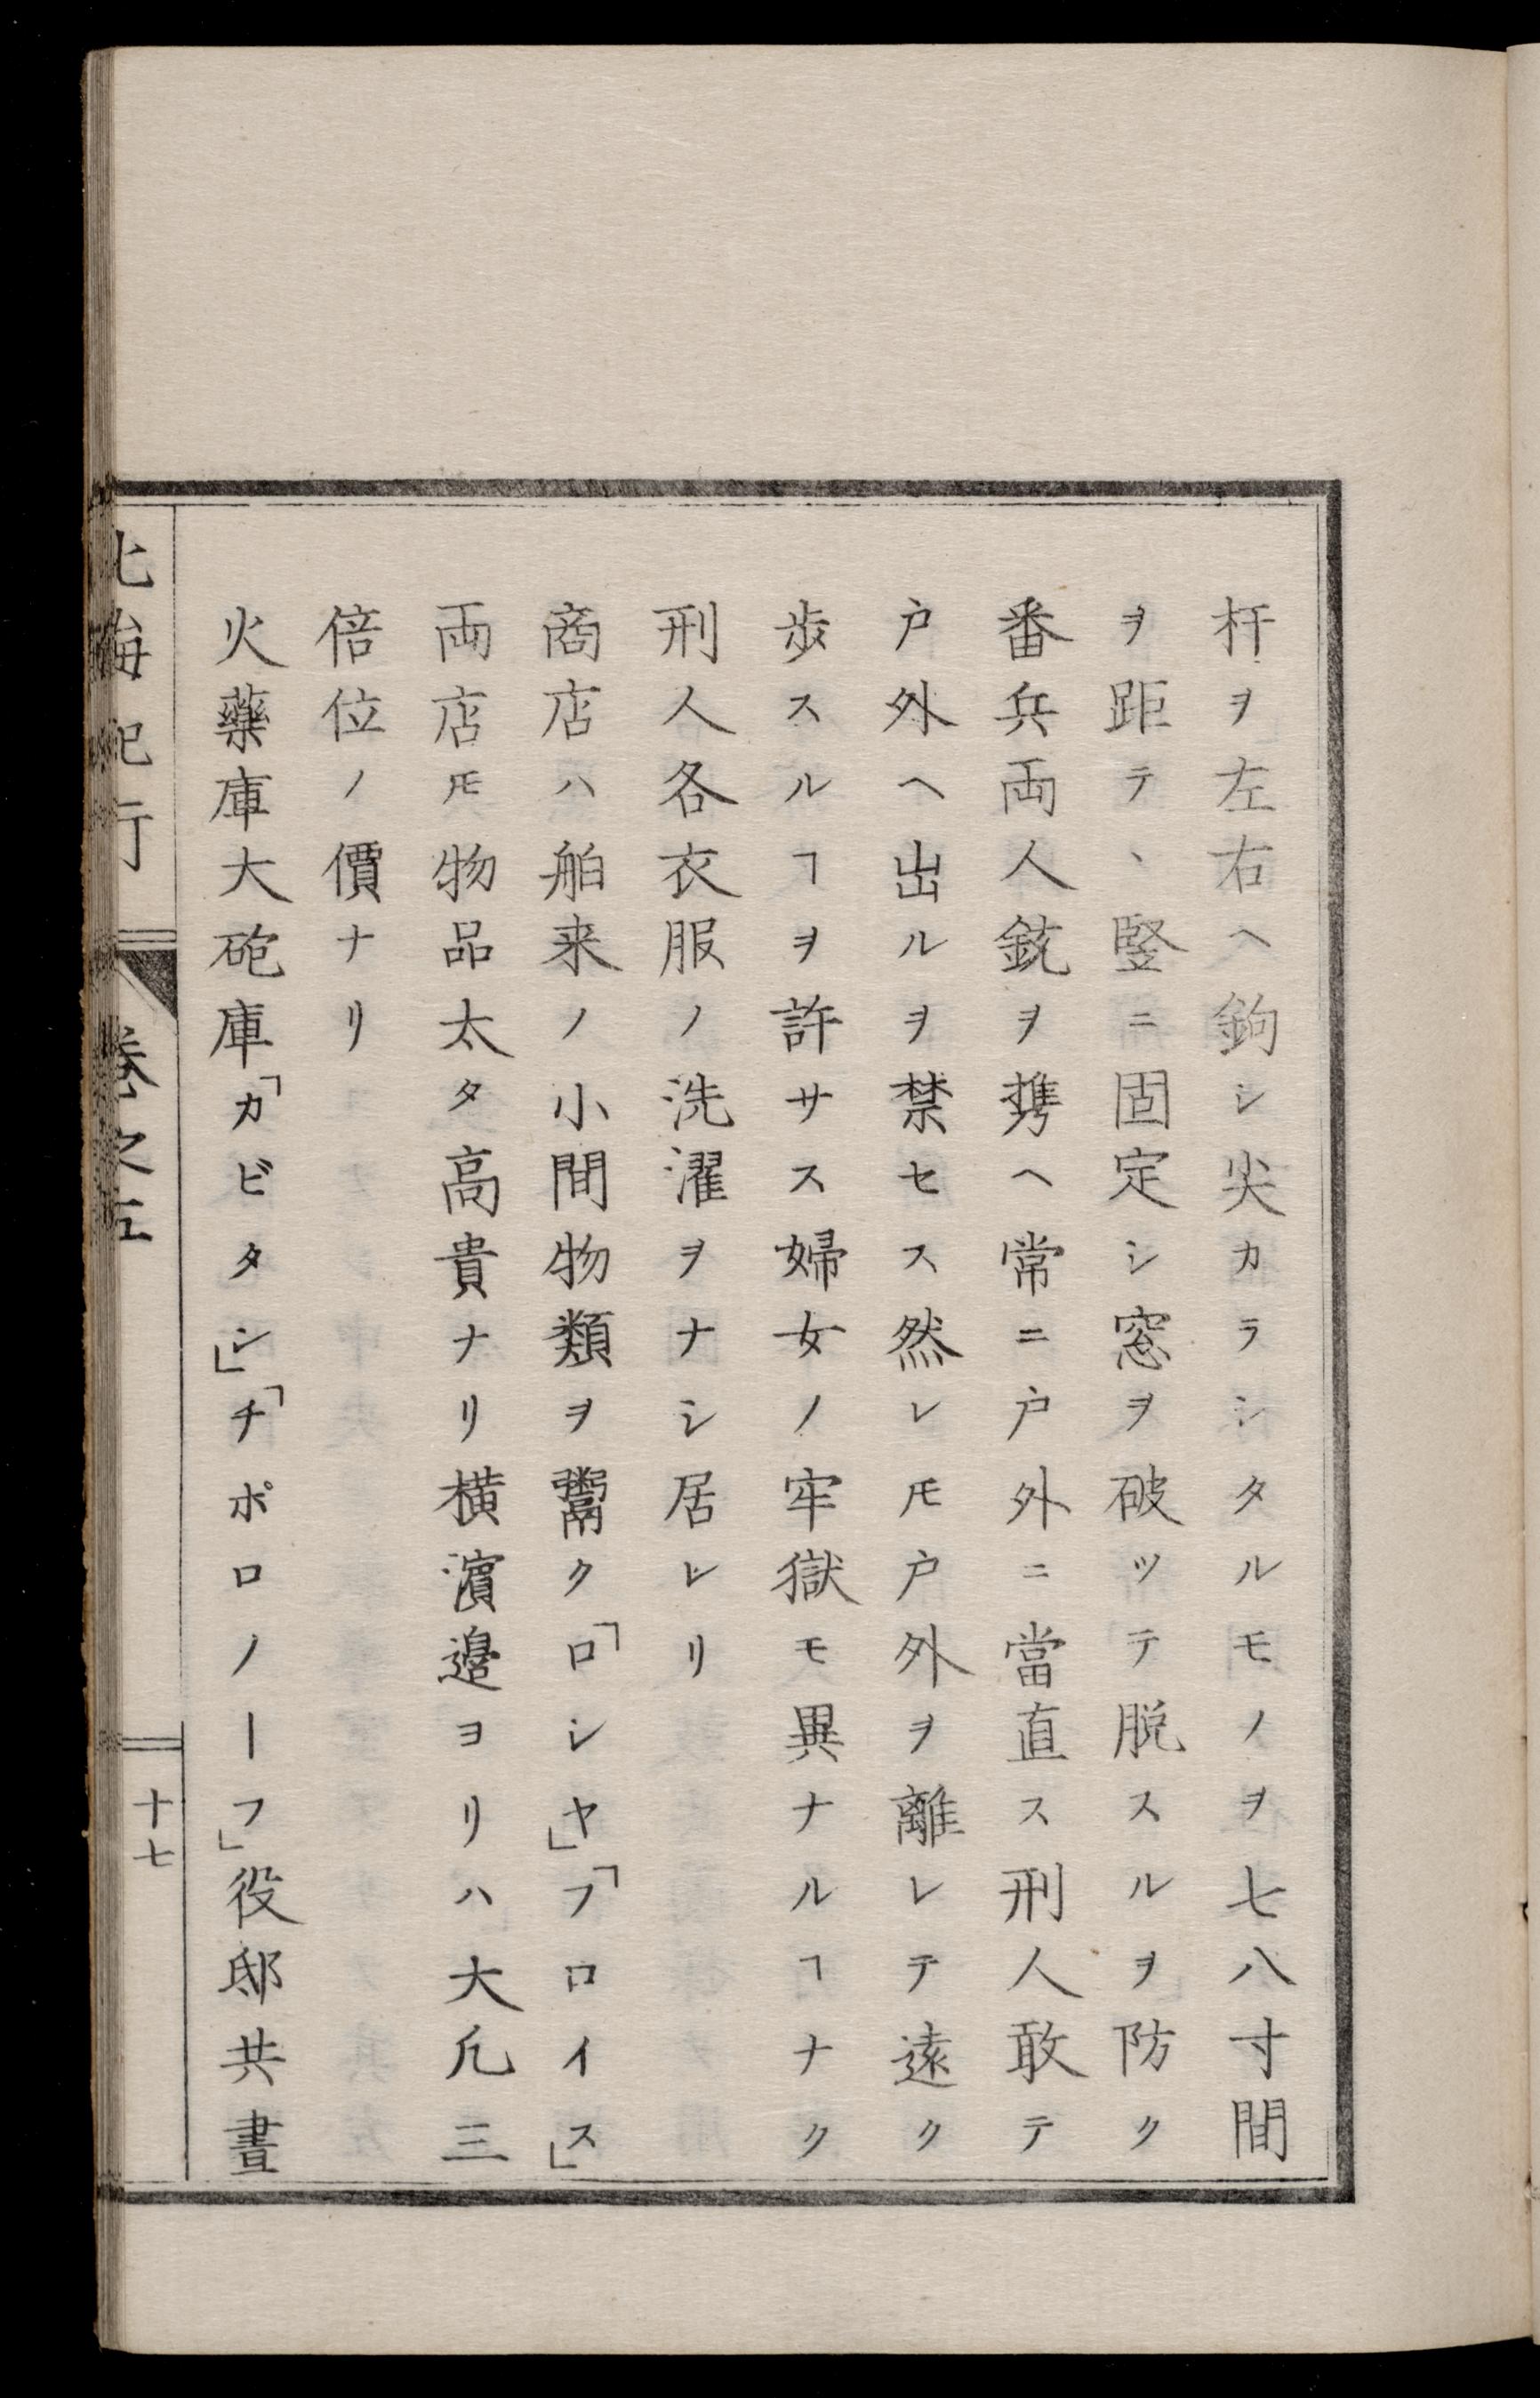 杆ヲ左右ヘ鉤シ尖カラシタルモノヲ七八寸間
ヲ距テ、竪ニ固定シ窓ヲ破ッテ脱スルヲ防ク
番兵両人銃ヲ携ヘ常ニ戸外ニ當直ス刑人敢テ
戸外ヘ出ルヲ禁セス然レ𪜈戸外ヲ離レテ遠ク
歩スルヿヲ許サス婦女ノ牢獄モ異ナルヿナク
刑人各衣服ノ洗濯ヲナシ居レリ
商店ハ舶来ノ小間物類ヲ鬻ク「ロシヤ」「フロイス」
両店𪜈物品太タ高貴ナリ横濱邉ヨリハ大凢三
倍位ノ價ナリ
火藥庫大砲庫「カビタシ」「チポロノーフ」役邸共晝
北海紀行
巻之五
十七